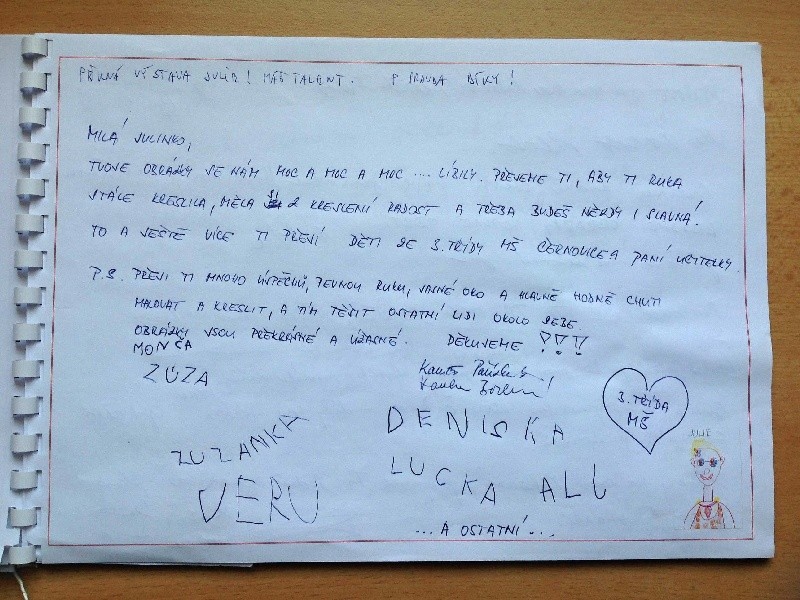 PĚKNÁ VÝSTAVA JULIE! MÁŠ TALENT. PRAVDA DÍKY!
MILÁ JULINKO,
TVOJE OBRÁZKY SE NÁM MOC A MOC A MOC .... LÍBILY. PŘEJEME TI, ABY TI RUKA
STÁLE KRESLILA, MĚLA Z KRESLENÍ RADOST A TŘEBA BUDEŠ NĚKDY I SLAVNÁ!
TO A JEŠTĚ VÍCE TI PŘEJÍ DĚTI ZE 3. TŘÍDY MŠ ČERNOVICE A PANÍ UČITELKY.
P.S. PŘEJI TI MNOHO ÚSPĚCHŮ, PEVNOU RUKU, JASNÉ OKO A HLAVNĚ HODNĚ CHUTI
MALOVAT A KRESLIT, A TÍM TĚŠIT OSTATNÍ LIDI OKOLO SEBE.
OBRÁZKY JSOU PŘEKRÁSNÉ A ÚŽASNÉ. DĚKUJEME !!!
MONČA
ZUZA
3. TŘÍDA
MŠ
DENISKA
ZUZANKA
LUCKA ALI
VERU
... A OSTATNÍ ...